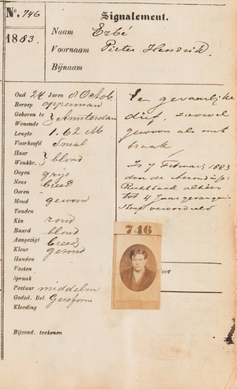 No. 746
1883.
Signalement.
Naam Erbé
Voornaam Pieter Hendrik.
Bijnaam
Oud 24 Jaren
Beroep opperman
Geboren te Amsterdam
Wonende
Lengte 1.62 M
Voorhoofd Smal
Haar blond
Wenkbr.
Oogen grijs
Neus breed
Ooren
Mond gewoon
Tanden
Kin rond
Baard blond
Aangezigt breed
Kleur gezond
Handen
Voeten
Spraak
Postuur middelm
Godsd. Bel Gereform
Kleeding
Bijzond. teekenen
Een gevaarlijke
dief, zoowel
gewoon als met
braak
Is 7 Februarij 1883
door de Arrond.
Rechtbank alhier
tot 4 Jaar gevangenis
straf veroordeeld
746